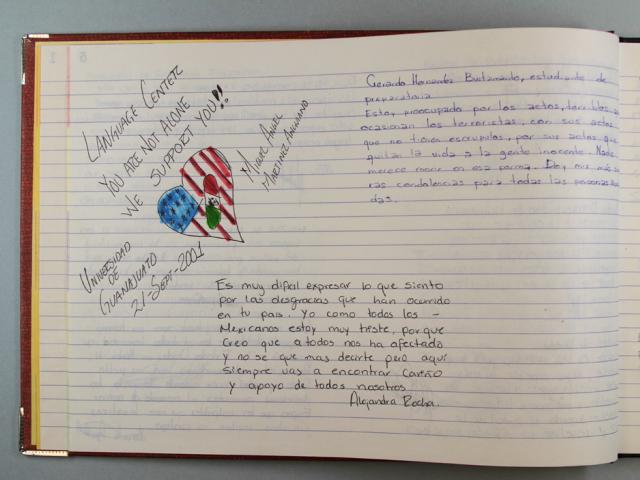 LANGUAGE CENTER
YOU ARE NOT ALONE
WE SUPPORT YOU!!
MIGUEL ANGEL
MARTINEZ
UNIVERSIDAD
DE
GUANAJUATO
21-SEPT-2001
Gerardo Hernandez Bustamante, estudiante de
preparatoria
Estoy preocupado por los actos terribles
ocasionan los terroristas, con sus actos
que no tienen escrupulos, por sus actos que
quitan la vida a la gente inocente. Nadie
merece morir en esa forma. Doy mis más
ras condolencias para todas las personas
das.
Es muy dificil expresar lo que siento
por las desgracias que han ocurrido
en tu pais. Yo como todos los -
Mexicanos estoy muy triste, porque
creo que a todos nos ha afectado
y no se que mas decirte pero aquí
siempre vas a encontrar cariño
y apoyo de todos nosotros
Alejandra Rocha.